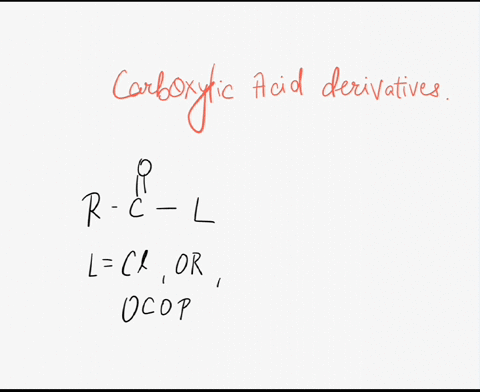 Carboxylic Acid derivatives.
O
R - C — L
L = Cl, OR,
OCOP